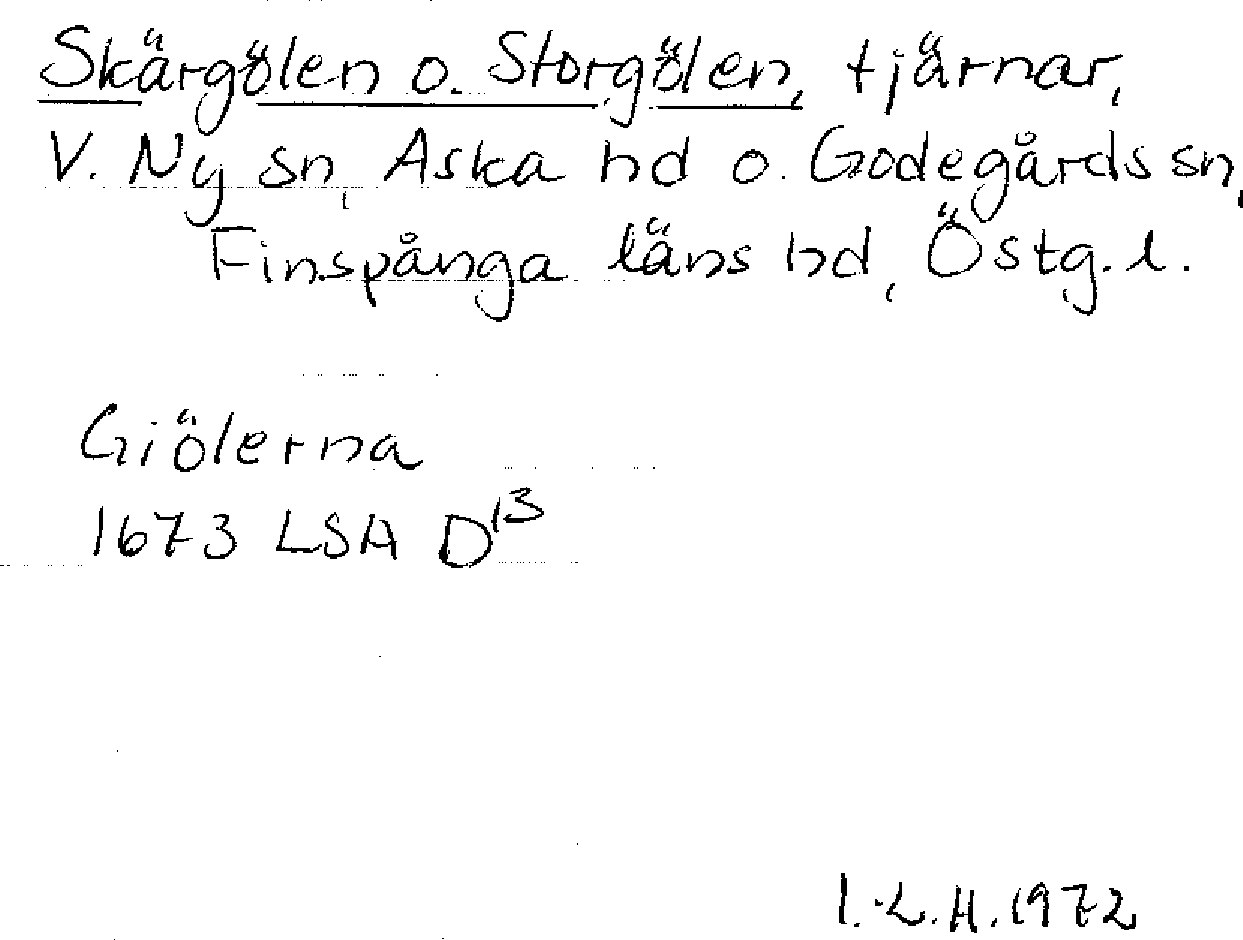 Skärgölen o. Storgölen, tjärnar,
V. Ny sn, Aska hd o. Godegårds sn,
Finspånga läns hd, Östg. l.
Giölerna
1673 LSA D13
I.L.H. 1972